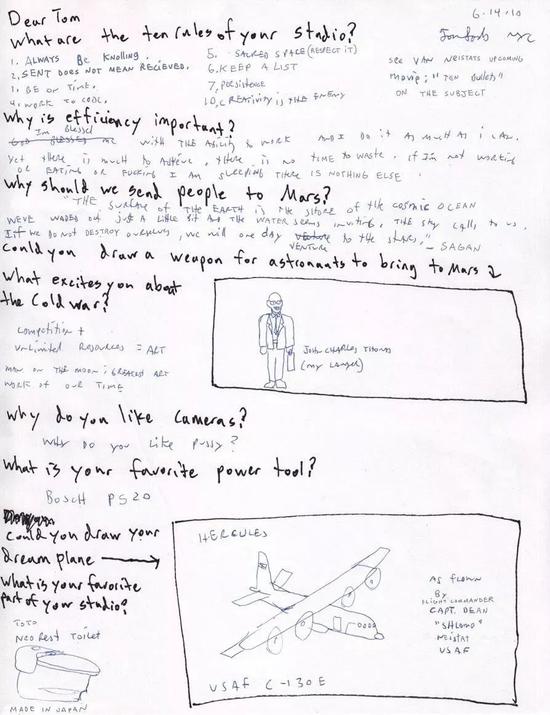 Dear Tom
6.14.10
What are the ten rules of your studio?
Tom Sachs NYC
1. ALWAYS BE KNOLLING.
2. SENT DOES NOT MEAN RECIEVED.
1. BE ON TIME.
4. WORK TO CODE.
5. SACRED SPACE (RESPECT IT)
6. KEEP A LIST
7. Persistence
10. CREATIVITY IS THE ENEMY
see VAN NEISTATS UPCOMING
movie; "TEN bullets"
ON THE SUBJECT
Why is efficiency important?
Im Blessed
God blesses me with THE ABILITY to WORK AND I DO IT AS MUCH AS I CAN.
Yet there is much to Achieve, there is no TIME TO WASTE. if I'm not working
OR EATING OR FUCKING I AM SLEEPING THERE IS NOTHING ELSE.
Why should we send people to Mars?
"THE SURFACE OF THE EARTH IS THE SHORE OF THE COSMIC OCEAN
WEVE WADED OUT JUST A LITTLE BIT AND THE WATER SEEMS INVITING. THE SKY CALLS TO US.
IF WE DO NOT DESTROY OURSELVES, WE will ONE DAY VENTURE to THE STARS," - SAGAN
VENTURE
Could you draw a weapon for astronauts to bring to Mars
What excites you about
the Cold war?
competition +
UNLIMITED RESOURCES = ART
MAN ON THE MOON: GREATEST ART
WORK OF OUR TIME
JOHN CHARLES THOMAS
(my LAWYER)
Why do you like cameras?
WHY DO you LIKE PUSSY?
What is your favorite power tool?
BOSCH PS20
Could you draw your
dream plane
What is your favorite
part of your studio?
TOTO
NEOREST TOILET
MADE IN JAPAN
HERCULES
AS FLOWN
By
FLIGHT COMMANDER
CAPT. DEAN
"SHLOMO"
NEISTAT
USAF
USAF C-130E